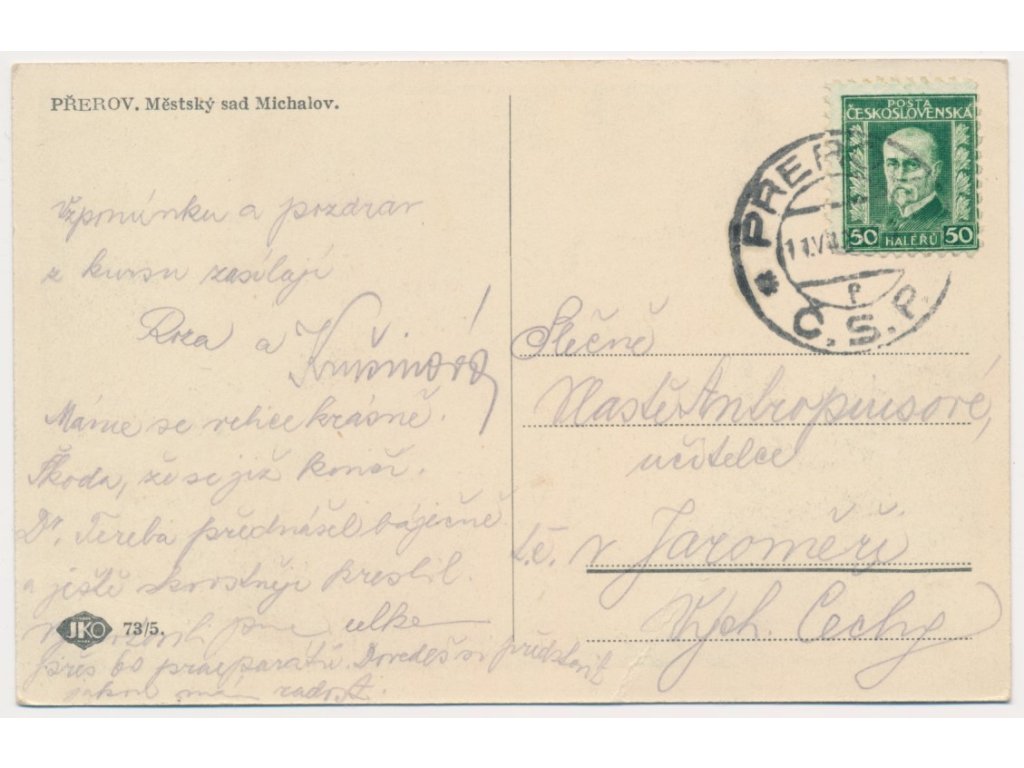 PŘEROV. Městský sad Michalov.
Vzpomínku a pozdrav
z kursu zasílají
Roza a
Máme se velice krásně.
Škoda, že se již končí.
Dr. Tereba přednášel báječně
a ještě skvostněji kreslil.
jsme
přes 60 praeparatů. Dovedeš si představit
jakou mám radost.
JKO 73/5.
POŠTA
ČESKOSLOVENSKÁ
50 HALÉŘŮ 50
PŘER
Č.S.P.
Slečně
Vlastě Antropiusové,
učitelce
t.č. v Jaroměři
Vých. Čechy